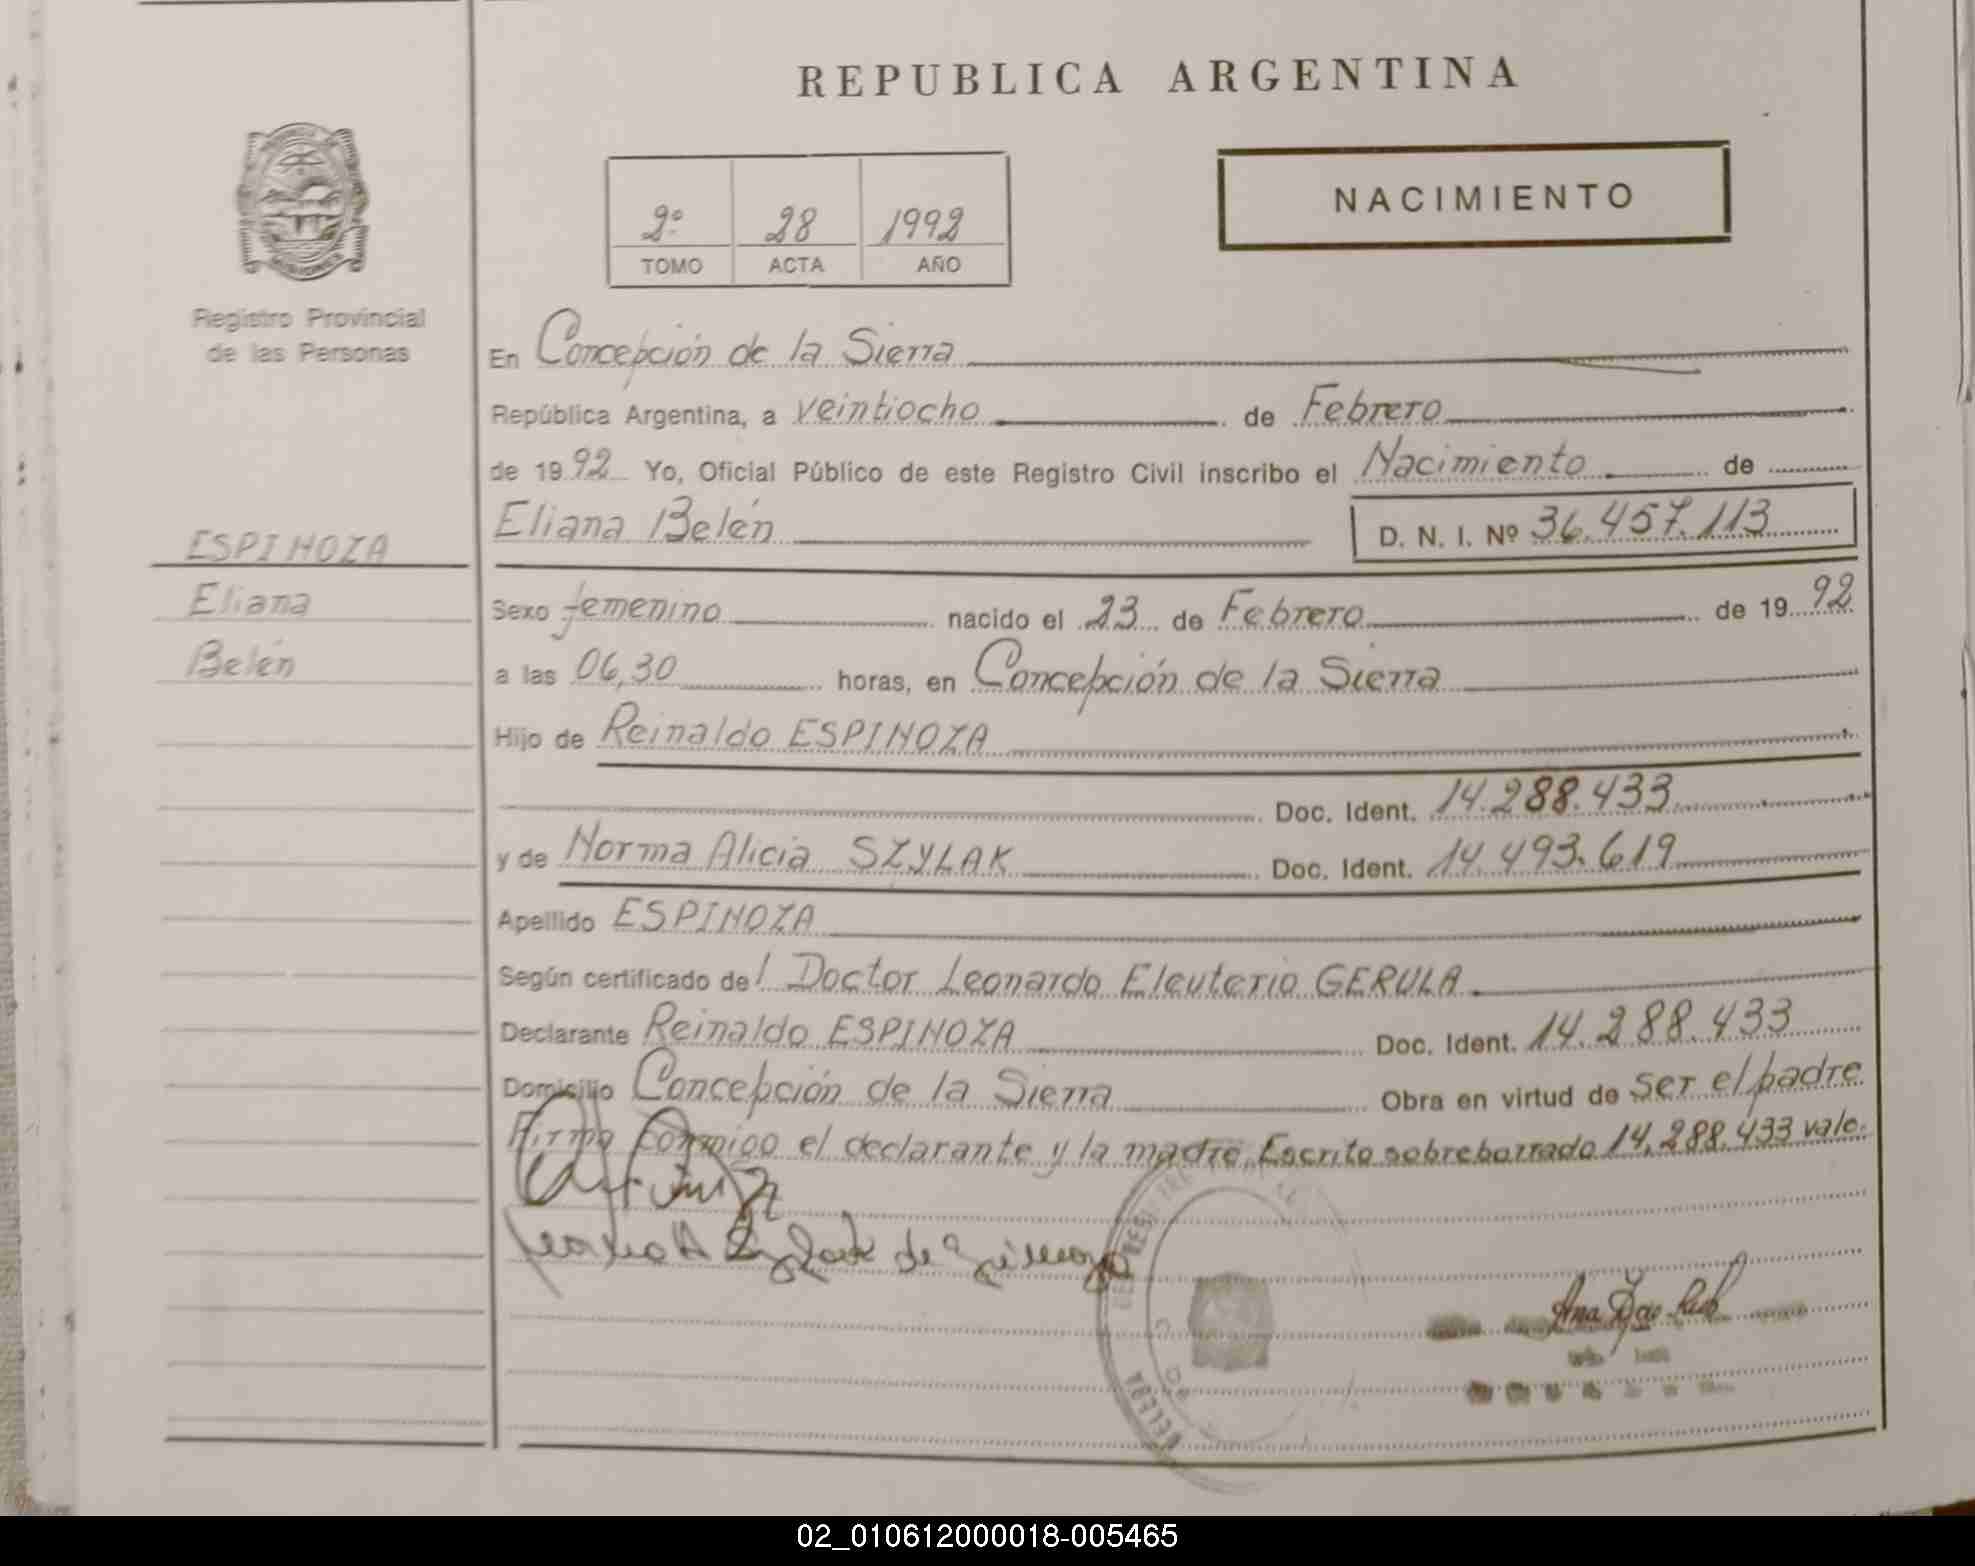 REPUBLICA ARGENTINA
NACIMIENTO
2º 28 1992
TOMO ACTA AÑO
Registro Provincial
de las Personas
En Concepción de la Sierra
República Argentina, a veintiocho de Febrero
de 1992 Yo, Oficial Público de este Registro Civil inscribo el Nacimiento de
Eliana Belén D. N. I. Nº 36.457.113
ESPINOZA
Eliana
Belén
Sexo femenino nacido el 23 de Febrero de 1992
a las 06,30 horas, en Concepción de la Sierra
Hijo de Reinaldo ESPINOZA
Doc. Ident. 14.288.433
y de Norma Alicia SZYLAK Doc. Ident. 14.493.619
Apellido ESPINOZA
Según certificado del Doctor Leonardo Eleuterio GERULA
Declarante Reinaldo ESPINOZA Doc. Ident. 14.288.433
Domicilio Concepción de la Sierra Obra en virtud de ser el padre
Firma conmigo el declarante y la madre, Escrito sobreborrado 14.288.433 vale.
02_010612000018-005465